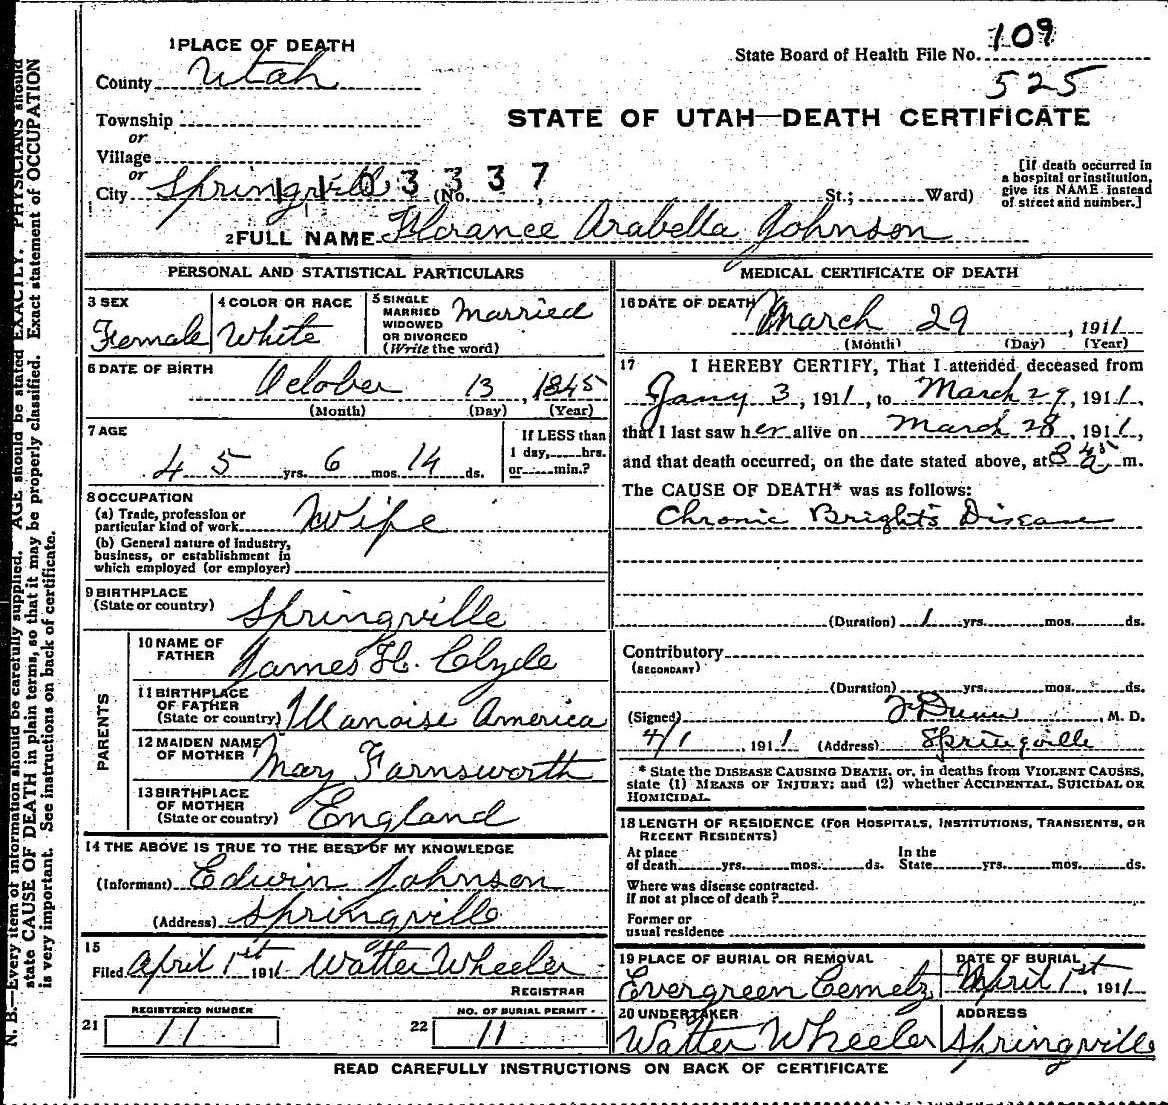 1 PLACE OF DEATH
County Utah
Township
or
Village
or
City Springville (No. St.; Ward)
1103337
State Board of Health File No. 109
525
STATE OF UTAH—DEATH CERTIFICATE
[If death occurred in
a hospital or institution,
give its NAME instead
of street and number.]
2 FULL NAME Florance Arabella Johnson
PERSONAL AND STATISTICAL PARTICULARS
3 SEX
Female
4 COLOR OR RACE
White
5 SINGLE
MARRIED
WIDOWED
OR DIVORCED
(Write the word)
Married
6 DATE OF BIRTH
October 13, 1845
(Month) (Day) (Year)
7 AGE
45 yrs. 6 mos. 14 ds.
If LESS than
1 day, hrs.
or min.?
8 OCCUPATION
(a) Trade, profession or
particular kind of work Wife
(b) General nature of industry,
business, or establishment in
which employed (or employer)
9 BIRTHPLACE
(State or country) Springville
PARENTS
10 NAME OF
FATHER James H. Clyde
11 BIRTHPLACE
OF FATHER
(State or country) Illanoise America
12 MAIDEN NAME
OF MOTHER Mary Farnsworth
13 BIRTHPLACE
OF MOTHER
(State or country) England
14 THE ABOVE IS TRUE TO THE BEST OF MY KNOWLEDGE
(Informant) Edwin Johnson
(Address) Springville
15
Filed April 1st 1911 Walter Wheeler
REGISTRAR
21 REGISTERED NUMBER
11
22 NO. OF BURIAL PERMIT
11
MEDICAL CERTIFICATE OF DEATH
16 DATE OF DEATH
March 29, 1911
(Month) (Day) (Year)
17 I HEREBY CERTIFY, That I attended deceased from
Jany 3, 1911, to March 29, 1911,
that I last saw her alive on March 28, 1911,
and that death occurred, on the date stated above, at 8 45 a m.
The CAUSE OF DEATH* was as follows:
Chronic Bright's Disease
(Duration) 1 yrs. mos. ds.
Contributory
(SECONDARY)
(Duration) yrs. mos. ds.
(Signed) Dunn, M. D.
4/1, 1911 (Address) Springville
* State the DISEASE CAUSING DEATH, or, in deaths from VIOLENT CAUSES,
state (1) MEANS OF INJURY; and (2) whether ACCIDENTAL, SUICIDAL OR
HOMICIDAL.
18 LENGTH OF RESIDENCE (FOR HOSPITALS, INSTITUTIONS, TRANSIENTS, OR
RECENT RESIDENTS)
At place In the
of death yrs. mos. ds. State yrs. mos. ds.
Where was disease contracted.
If not at place of death?
Former or
usual residence
19 PLACE OF BURIAL OR REMOVAL
Evergreen Cemetry
DATE OF BURIAL
April 1st, 1911
20 UNDERTAKER
Walter Wheeler
ADDRESS
Springville
READ CAREFULLY INSTRUCTIONS ON BACK OF CERTIFICATE
N. B.—Every item of information should be carefully supplied. AGE should be stated EXACTLY. PHYSICIANS should
state CAUSE OF DEATH in plain terms, so that it may be properly classified. Exact statement of OCCUPATION
is very important. See instructions on back of certificate.